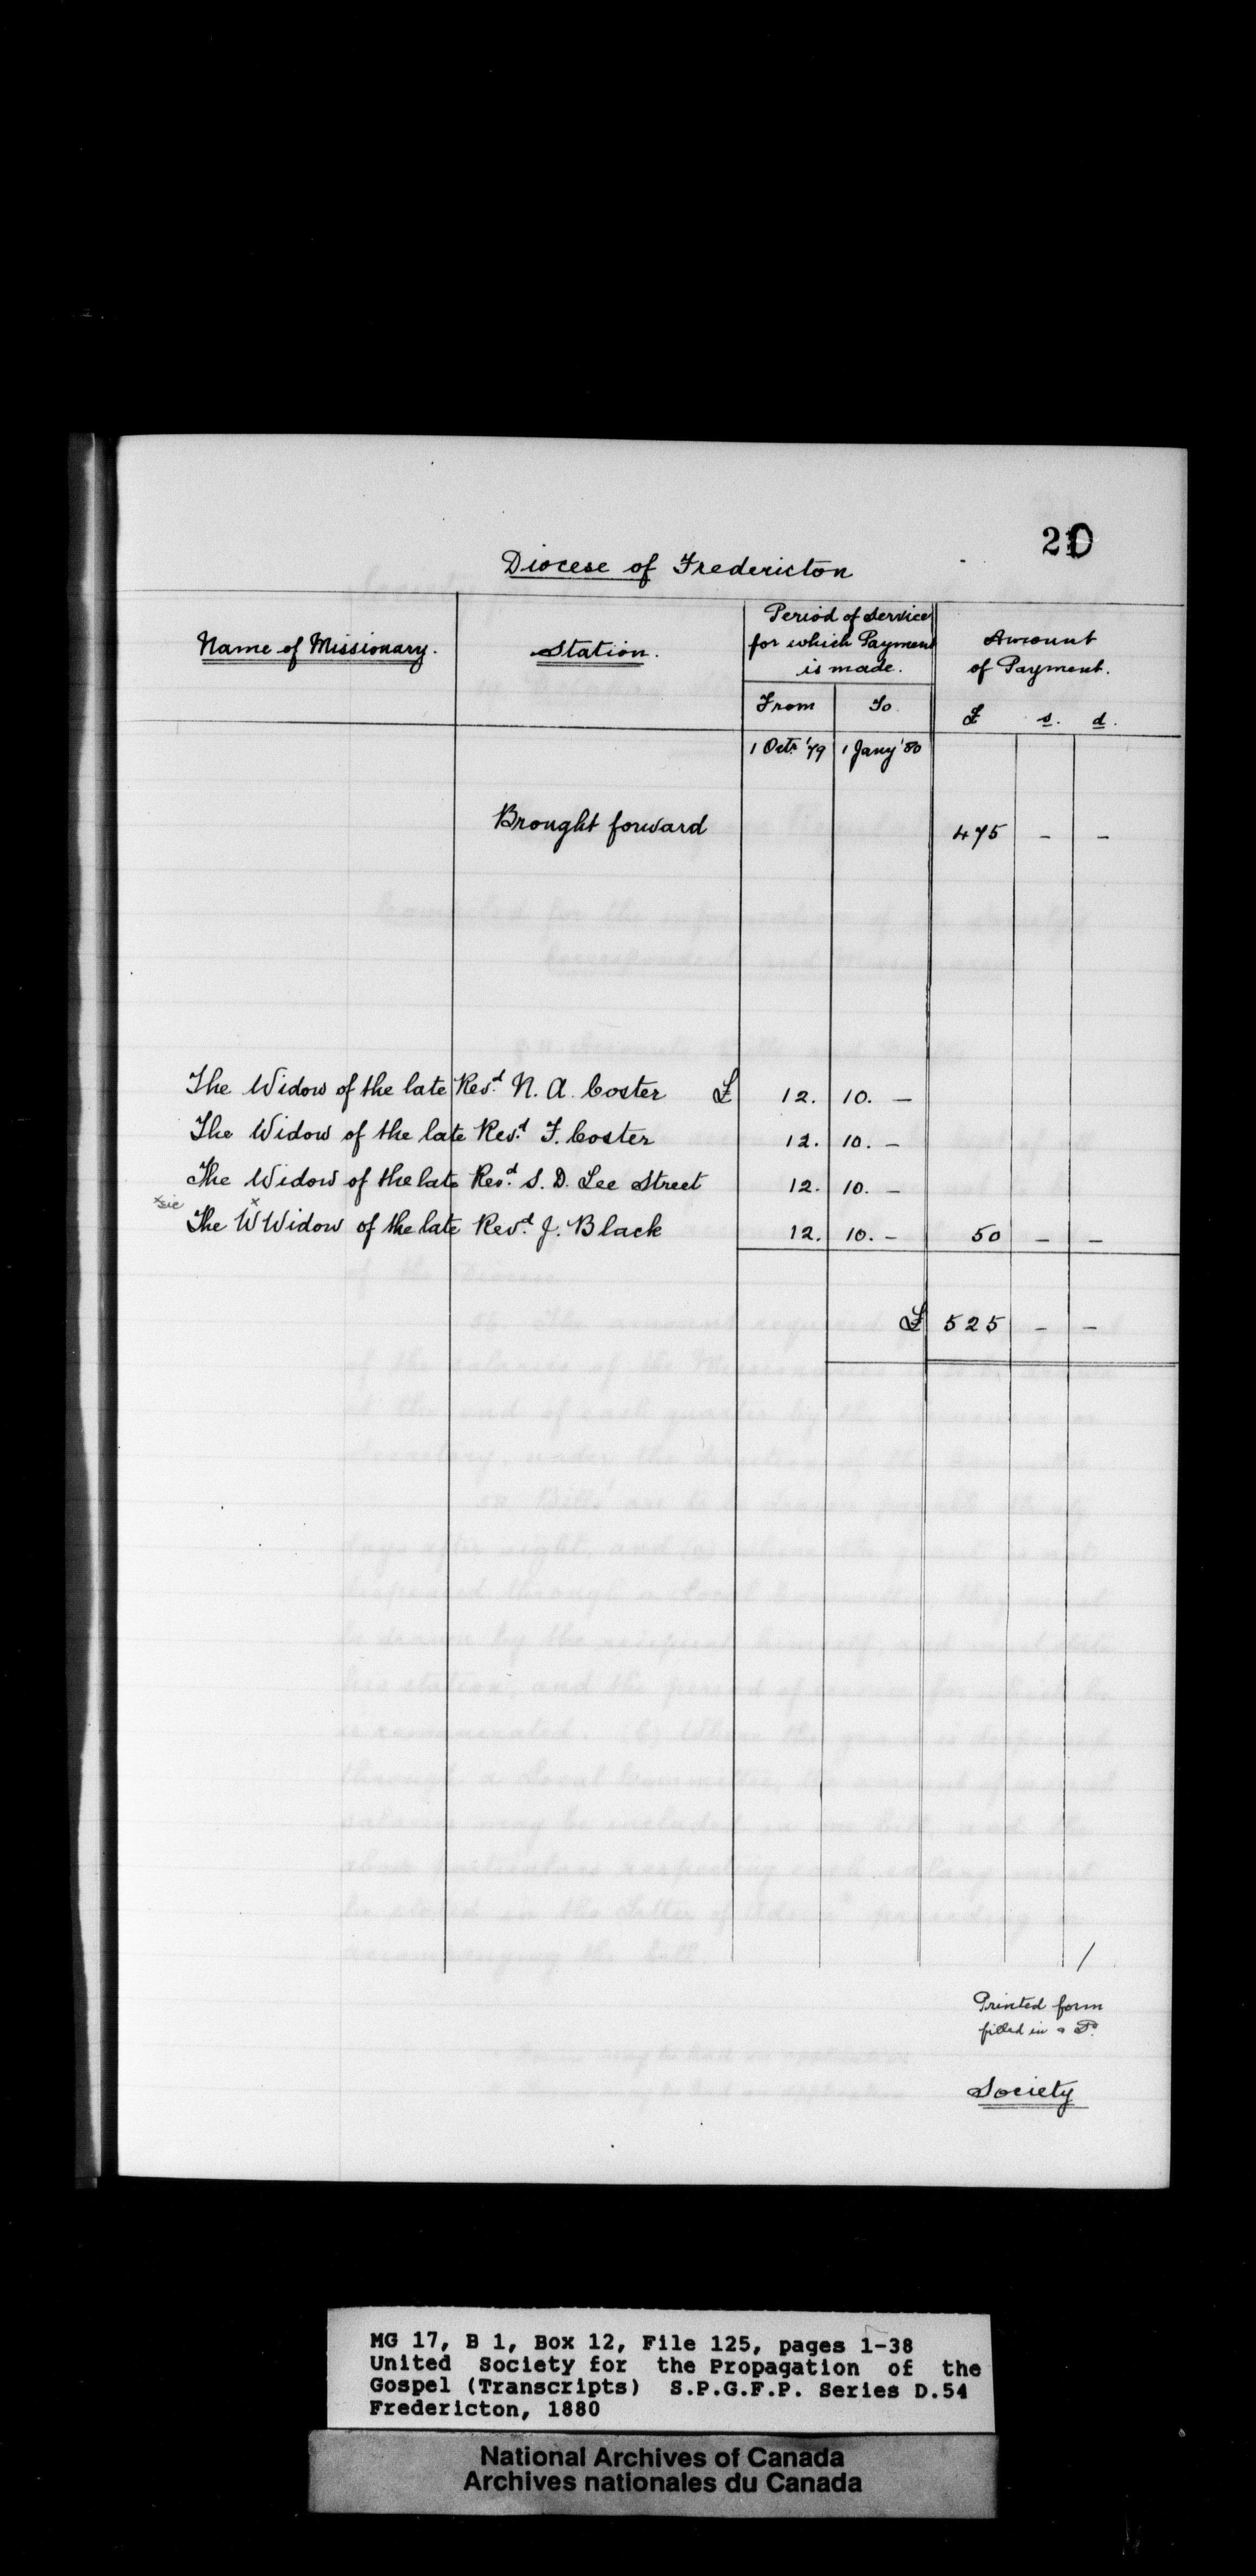 20
Diocese of Fredericton
Name of Missionary.
Station.
Period of Service
for which Payment
is made.
Amount
of Payment.
From To £ s. d.
1 Octr '79 1 Jany '80
Brought forward 475 - -
The Widow of the late Revd. N. A. Coster £ 12. 10. -
The Widow of the late Revd. F. Coster 12. 10. -
The Widow of the late Revd. S. D. Lee Street 12. 10. -
x sic x
The W Widow of the late Revd. J. Black 12. 10. - 50 - -
£ 525 - -
/
Printed form
filled in
Society
MG 17, B 1, Box 12, File 125, pages 1-38
United Society for the Propagation of the
Gospel (Transcripts) S.P.G.F.P. Series D.54
Fredericton, 1880
National Archives of Canada
Archives nationales du Canada